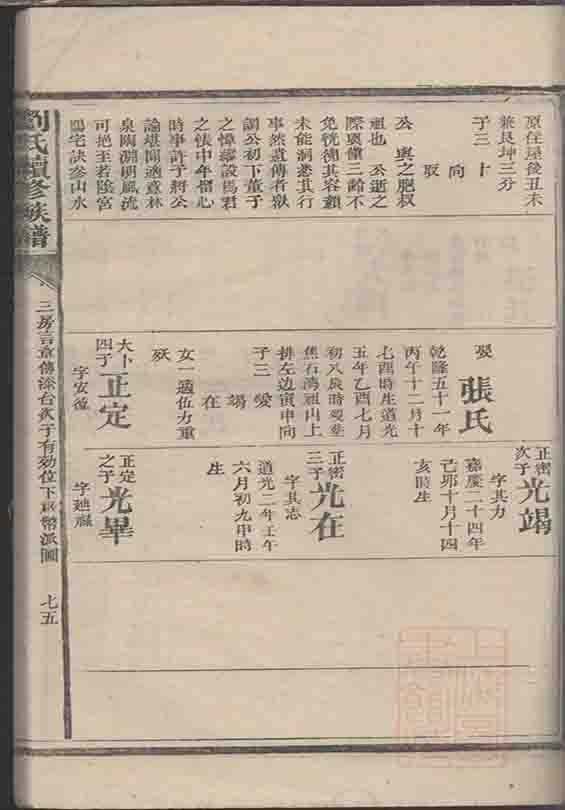 原住屋後丑未
兼艮坤三分
子三 十
向
㕞
公 輿之肥叔
祖也 公逝之
際輿僅三齡不
免恍德其容顏
未能洞悉其行
事然遺傳者嶽
調公初下董子
之幃繆設馬君
之帳中年權心
時事許子將公
論堪聞適意林
泉陶淵明風流
可挹至若陰宮
陽宅訣參山水
娶 張氏
乾隆五十一年
丙午十二月十
七酉時生道光
五年乙酉七月
初八辰時歿塟
焦石灣祖山上
排左边寅申向
子三 愛
竭
在
女一適伍力重
殀
大卜
四子 正定
字安復
正密
次子 光竭
字其力
嘉慶二十四年
己卯十月十四
亥時生
正密
三子 光在
字其志
道光二年壬午
六月初九申時
生
正定
之子 光畢
字廸祿
劉氏續修族譜
三房言章傳滌台攵子有効位下
派圖
七五